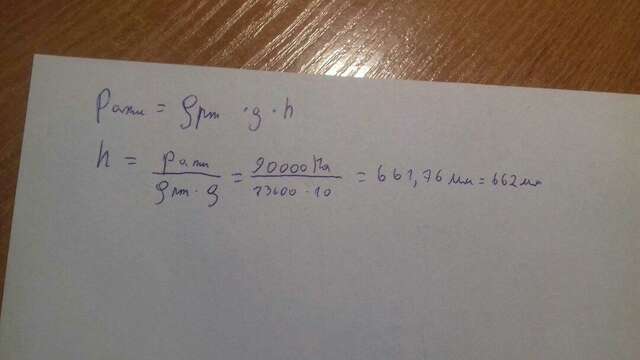 Pатм = ρрт · g · h
h = Pатм / ρрт · g = 90000 Па / 13600 · 10 = 661,76 мм = 662 мм